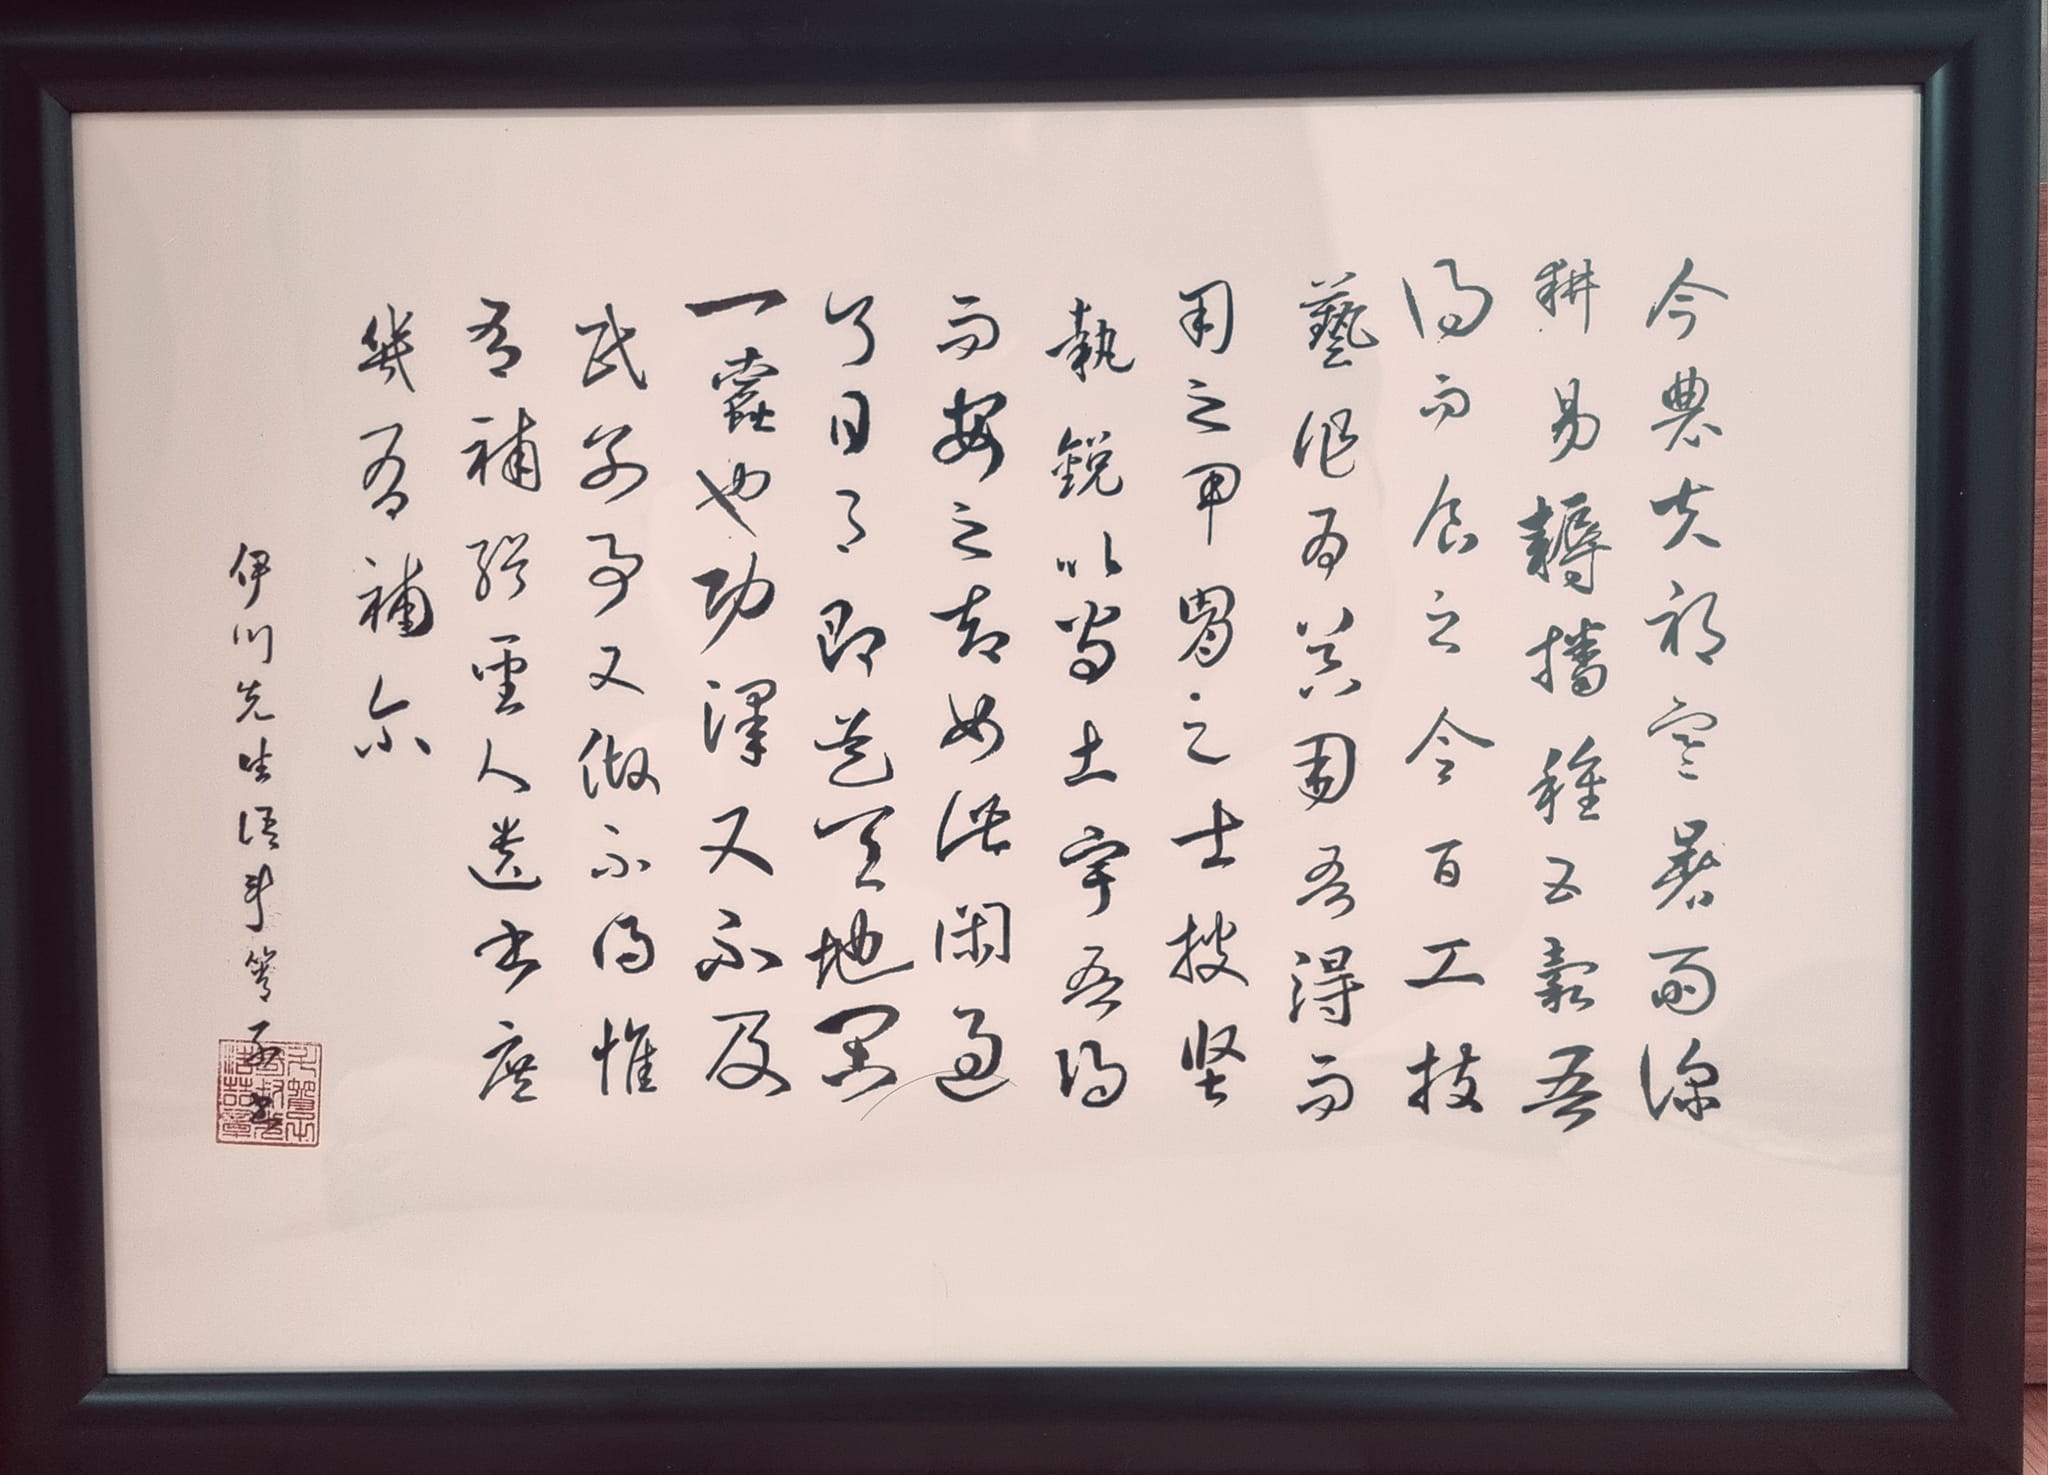 今農夫祁寒暑雨深
耕易耨播種五穀吾
得而食之今百工技
藝作為器用吾得而
用之甲胄之士披坚
執銳以守土宇吾得
而安之却如此閑過
了日月即是天地間
一蠹也功澤又不及
民別事又做不得惟
有補緝聖人遺書庶
幾有補尔
伊川先生語